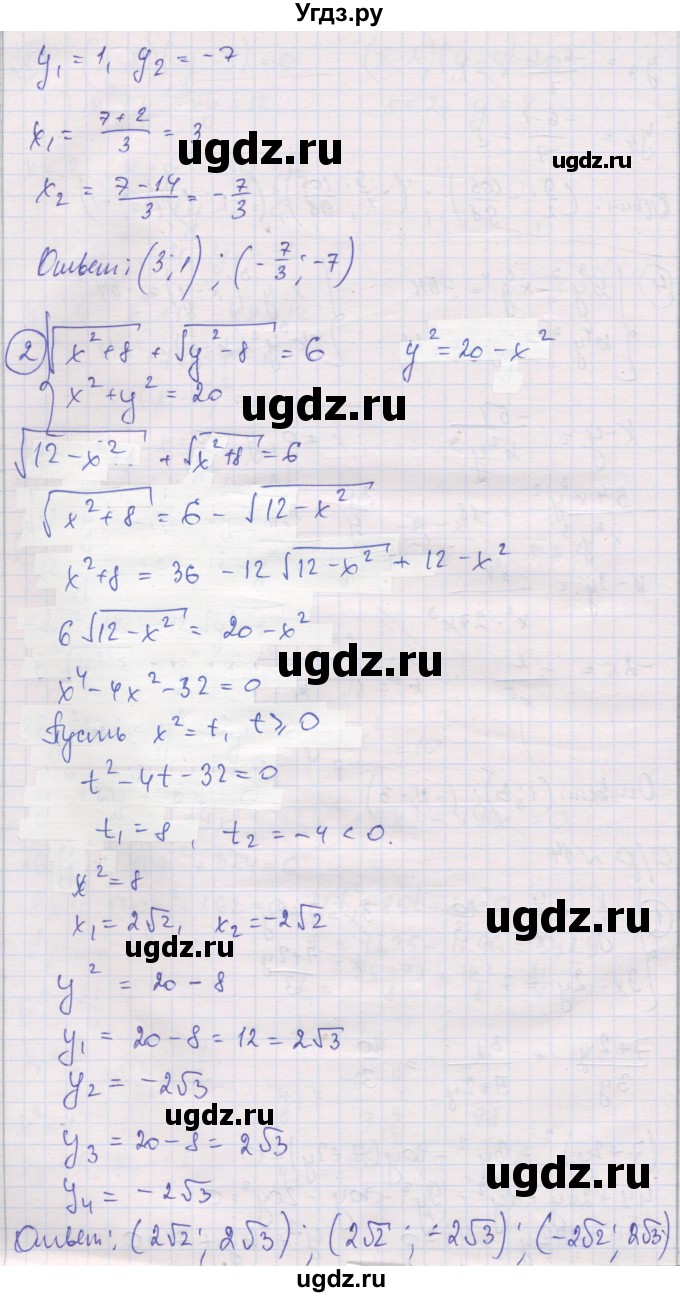 Угдз.ру
y₁ = 1, y₂ = -7
x₁ = (7+2)/3 = 3
ugdz.ru
ugdz.ru
x₂ = (7-14)/3 = -7/3
ugdz.ru
Ответ: (3; 1); (-7/3; -7)
② { √(x²+8) + √(y²-8) = 6   y² = 20 - x²
x² + y² = 20
ugdz.ru
√(12-x²) + √(x²+8) = 6
ugdz.ru
√(x²+8) = 6 - √(12-x²)
x²+8 = 36 - 12√(12-x²) + 12 - x²
6√(12-x²) = 20 - x²
ugdz.ru
x⁴ - 4x² - 32 = 0
Пусть x² = t, t ⩾ 0
t² - 4t - 32 = 0
t₁ = 8, t₂ = -4 < 0.
x² = 8
x₁ = 2√2, x₂ = -2√2
ugdz.ru
ugdz.ru
y² = 20 - 8
y₁ = 20 - 8 = 12 = 2√3
y₂ = -2√3
ugdz.ru
y₃ = 20 - 8 = 2√3
ugdz.ru
y₄ = -2√3
Ответ: (2√2; 2√3); (2√2; -2√3); (-2√2; 2√3)
ugdz.ru